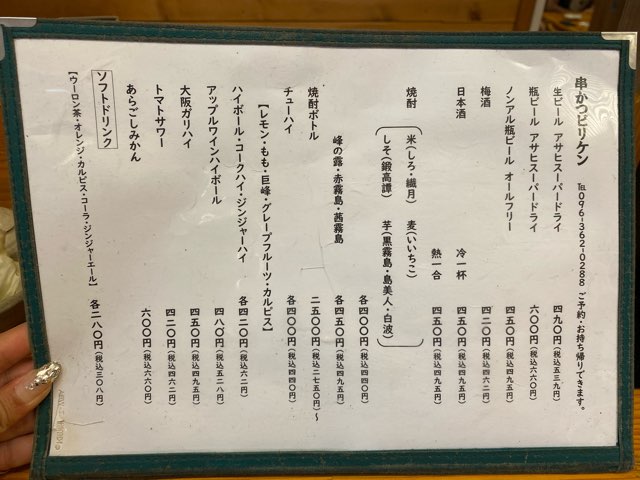 串かつビリケン ℡096-362-0288 ご予約・お持ち帰りできます。
生ビール アサヒスーパードライ 四九〇円(税込五三九円)
瓶ビール アサヒスーパードライ 六〇〇円(税込六六〇円)
ノンアル瓶ビール オールフリー 四五〇円(税込四九五円)
梅酒 四二〇円(税込四六二円)
日本酒 冷一杯 四五〇円(税込四九五円)
熱一合 四五〇円(税込四九五円)
焼酎 米(しろ・繊月) 麦(いいちこ)
しそ(鍛高譚) 芋(黒霧島・島美人・白波)
各四〇〇円(税込四四〇円)
峰の露・赤霧島・茜霧島 各四五〇円(税込四九五円)
焼酎ボトル 二五〇〇円(税込二七五〇円)〜
チューハイ 各四〇〇円(税込四四〇円)
【レモン・もも・巨峰・グレープフルーツ・カルピス】
ハイボール・コークハイ・ジンジャーハイ 各四二〇円(税込四六二円)
アップルワインハイボール 四八〇円(税込五二八円)
大阪ガリハイ 四五〇円(税込四九五円)
トマトサワー 四二〇円(税込四六二円)
あらごしみかん 六〇〇円(税込六六〇円)
ソフトドリンク 各二八〇円(税込三〇八円)
【ウーロン茶・オレンジ・カルピス・コーラ・ジンジャーエール】